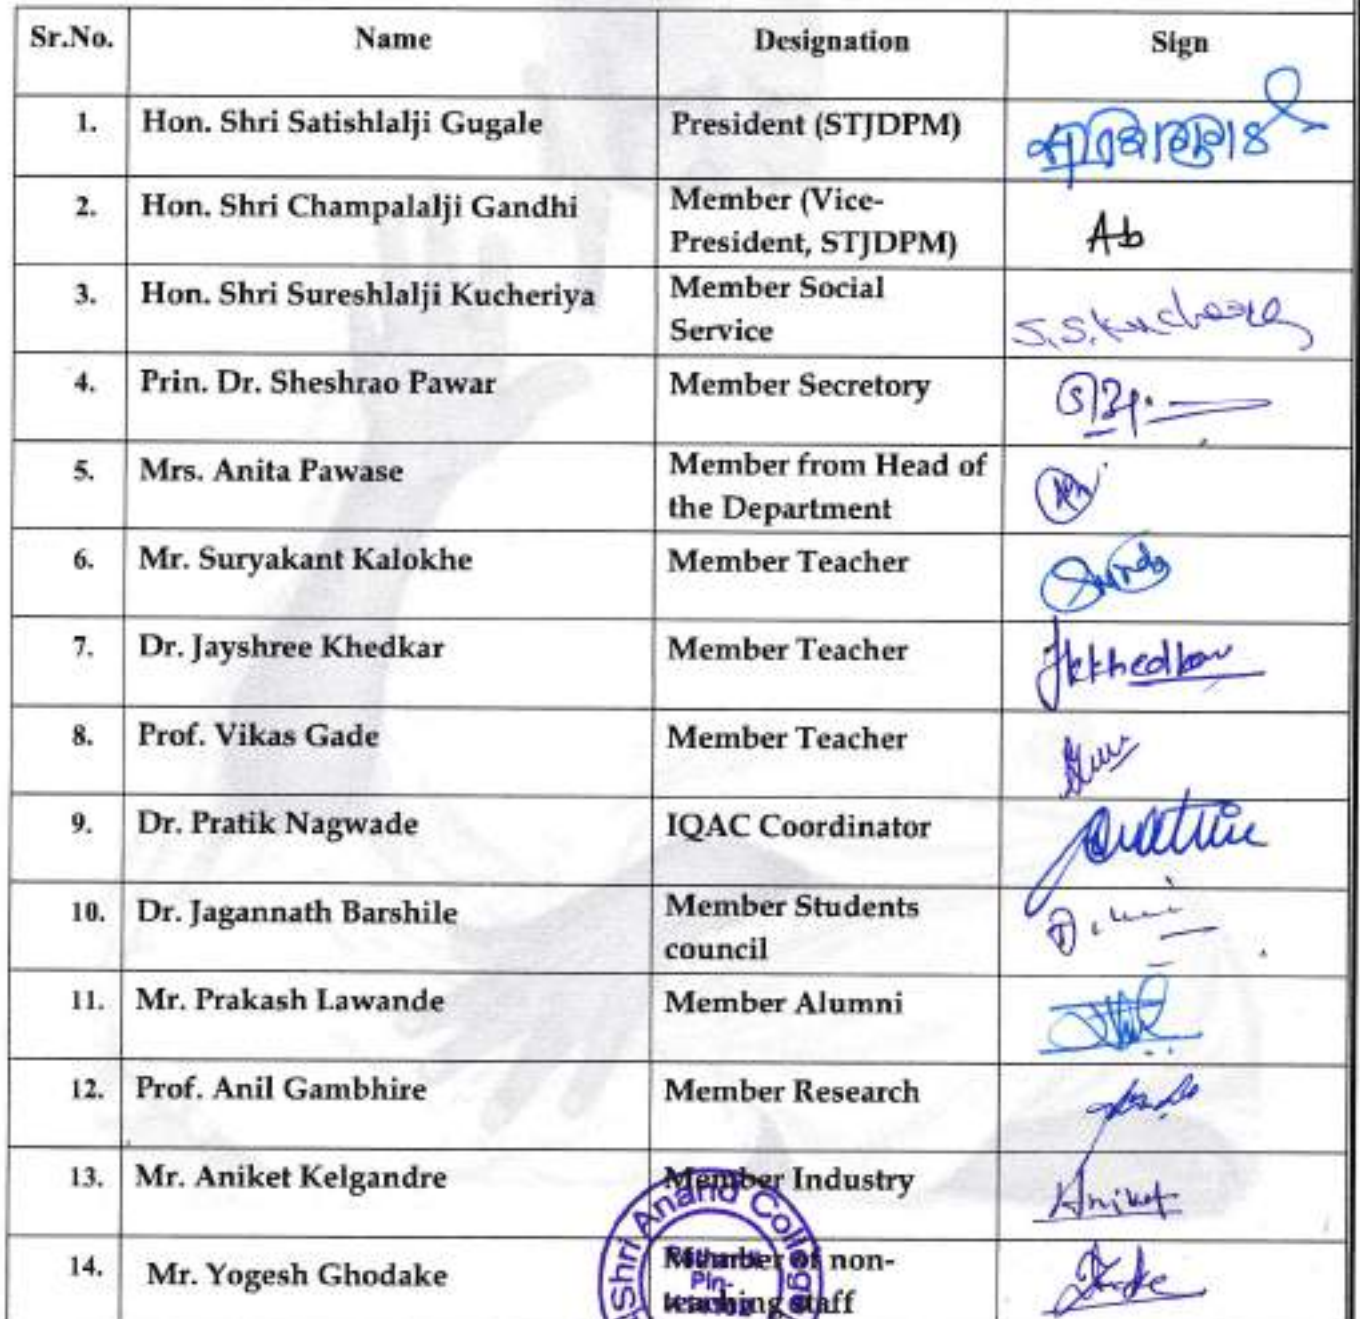 Sr.No. Name Designation Sign
1. Hon. Shri Satishlalji Gugale President (STJDPM)
2. Hon. Shri Champalalji Gandhi Member (Vice-
President, STJDPM) Ab
3. Hon. Shri Sureshlalji Kucheriya Member Social
Service S.S.Kucheriya
4. Prin. Dr. Sheshrao Pawar Member Secretory
5. Mrs. Anita Pawase Member from Head of
the Department
6. Mr. Suryakant Kalokhe Member Teacher
7. Dr. Jayshree Khedkar Member Teacher
8. Prof. Vikas Gade Member Teacher
9. Dr. Pratik Nagwade IQAC Coordinator
10. Dr. Jagannath Barshile Member Students
council
11. Mr. Prakash Lawande Member Alumni
12. Prof. Anil Gambhire Member Research
13. Mr. Aniket Kelgandre Member Industry Aniket
14. Mr. Yogesh Ghodake Member of non-
teaching staff
Shri Anand College
Pin-